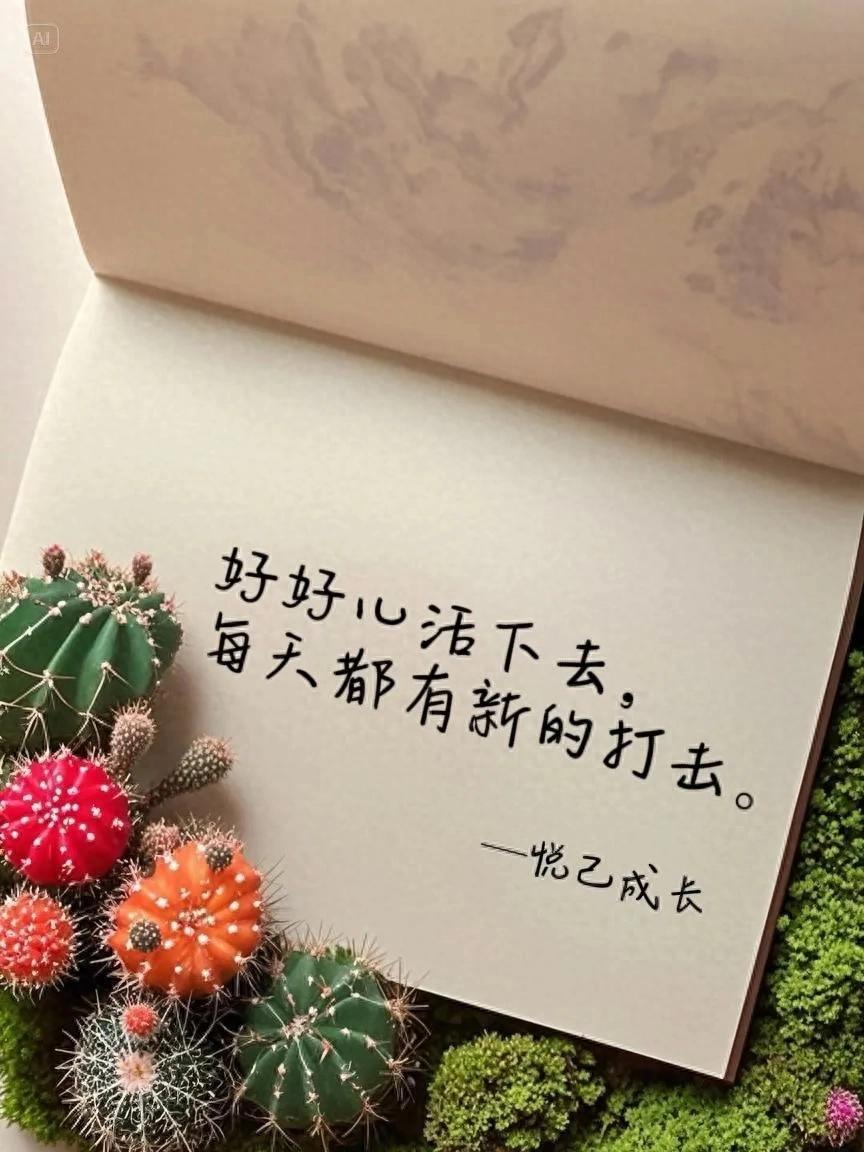 AI
好好儿活下去，
每天都有新的打击。
—悦己成长